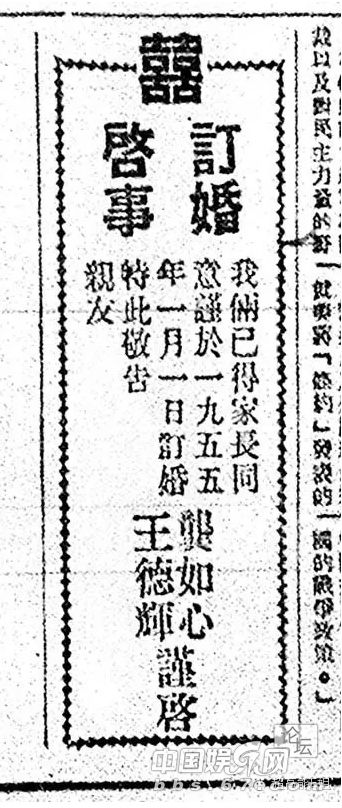 囍
訂婚
啓事
我倆已得家長同
意謹於一九五五
年一月一日訂婚
特此敬告
親友
龔如心
王德輝
謹啓
以及對民主力量的
國的戰爭政策。」
论坛
中国娱乐网